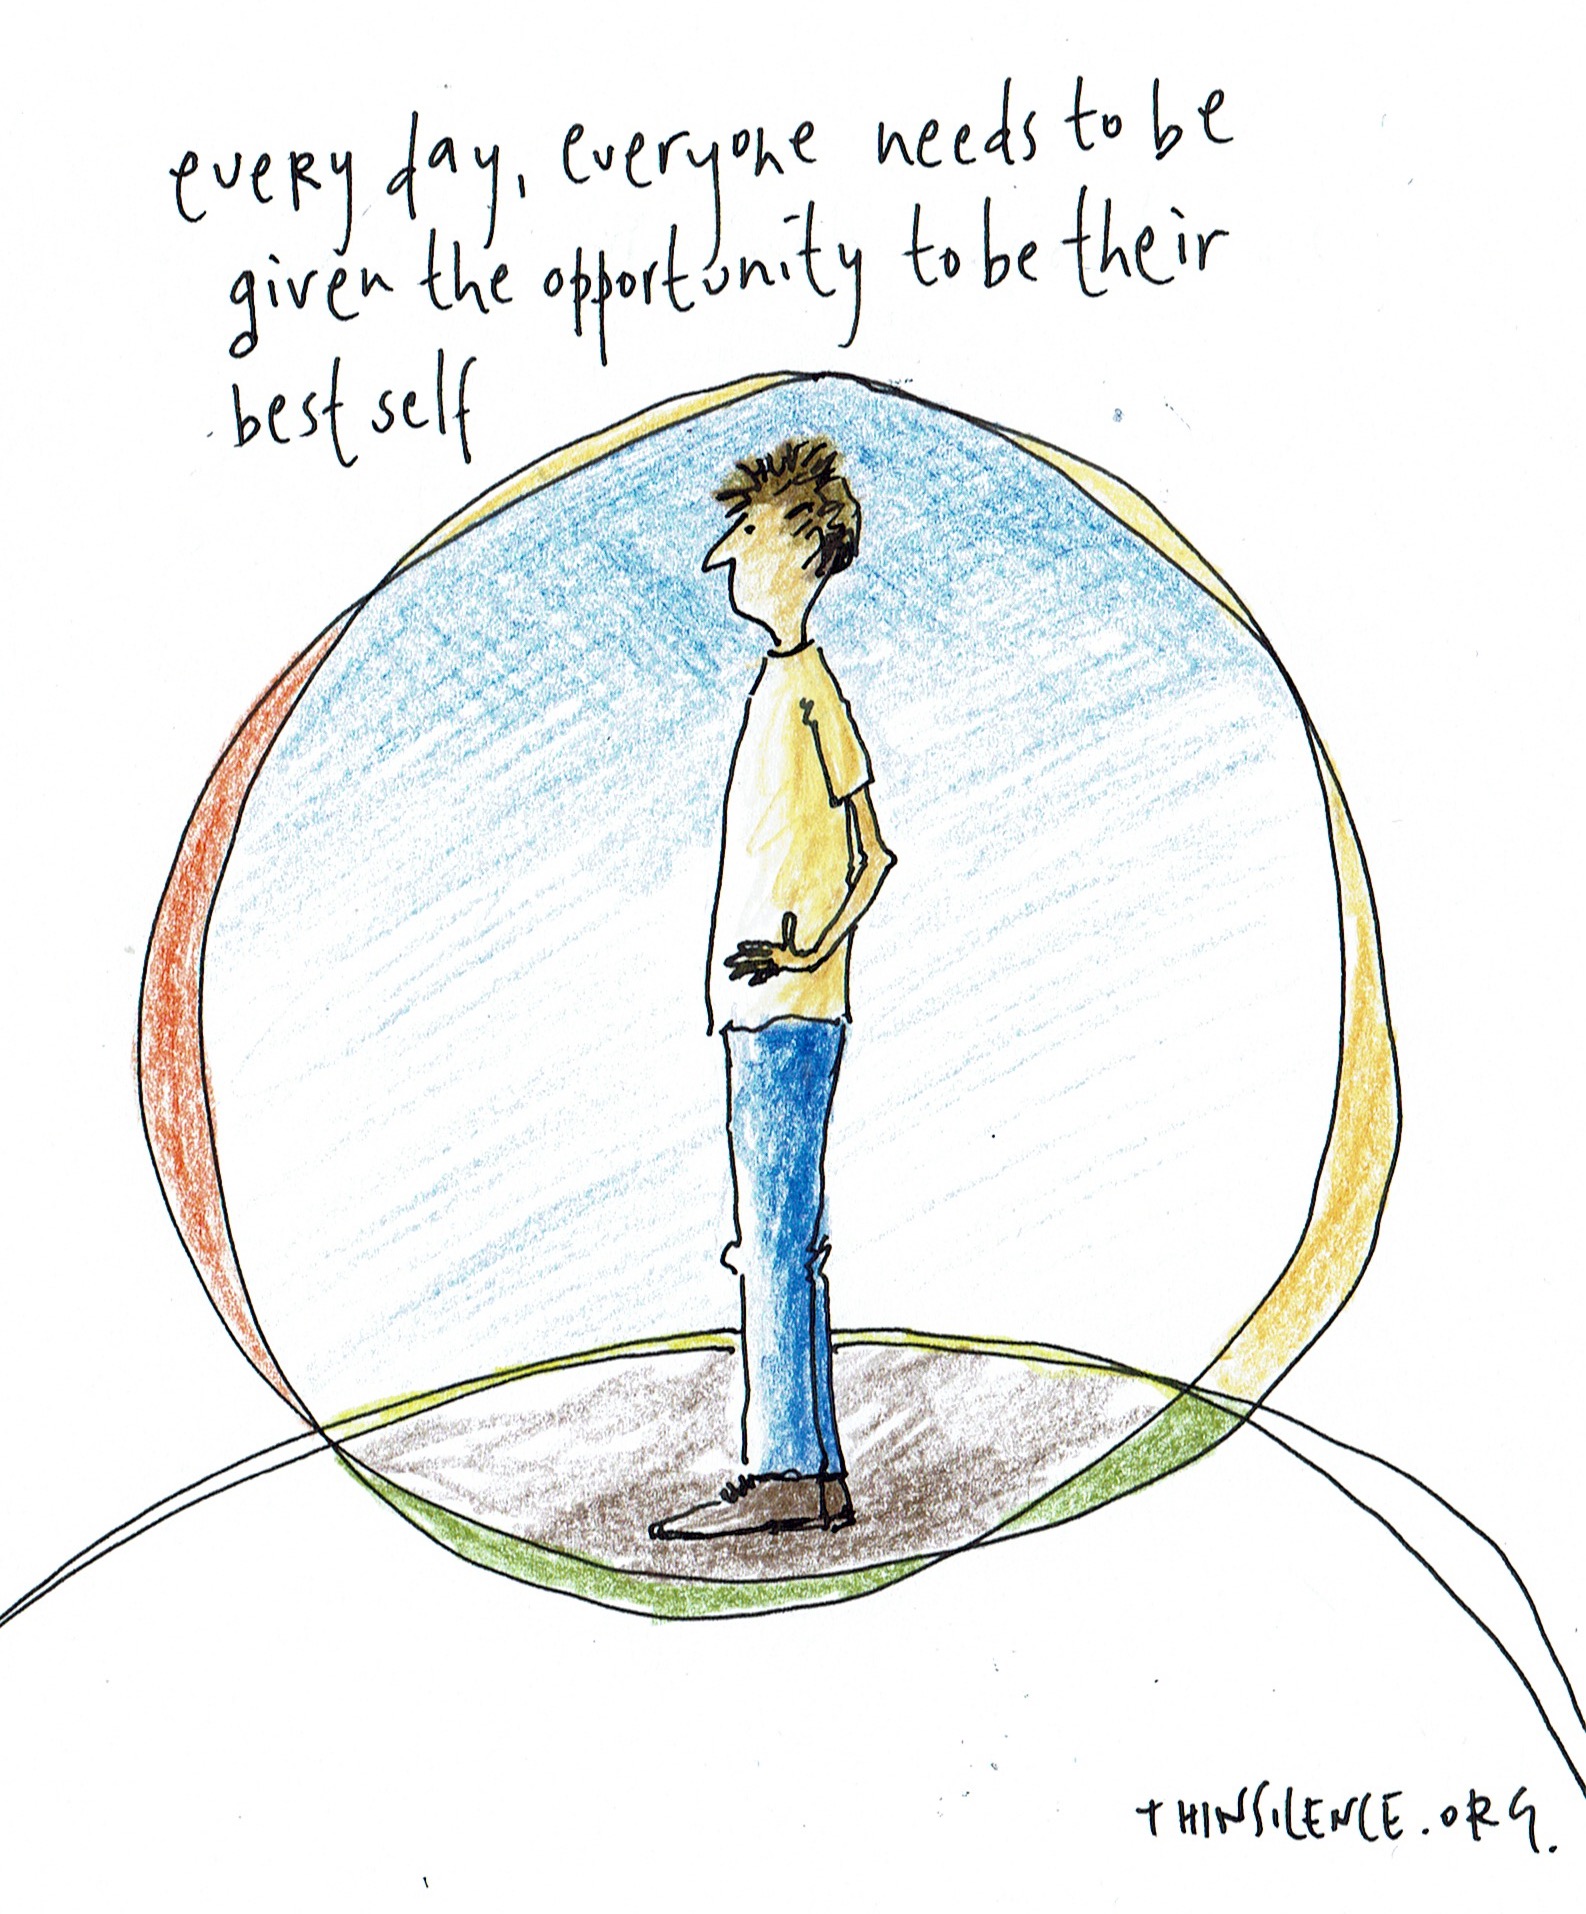 every day, everyone needs to be
given the opportunity to be their
best self
THINSILENCE.ORG.